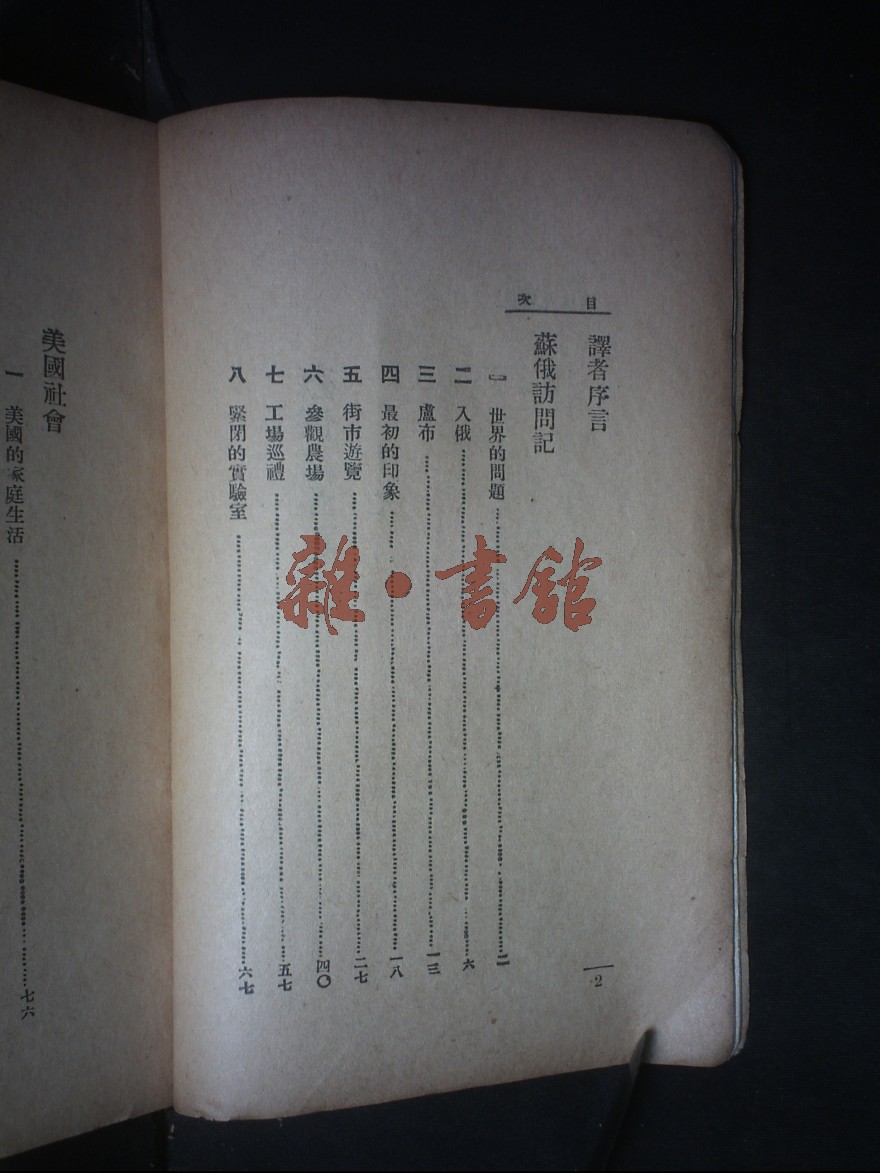 目次
譯者序言
蘇俄訪問記
一 世界的問題……二
二 入俄……六
三 盧布……一三
四 最初的印象……一八
五 街市遊覽……二七
六 參觀農場……四〇
七 工場巡禮……五七
八 緊閉的實驗室……六七
2
美國社會
一 美國的家庭生活……七六
雜·書館